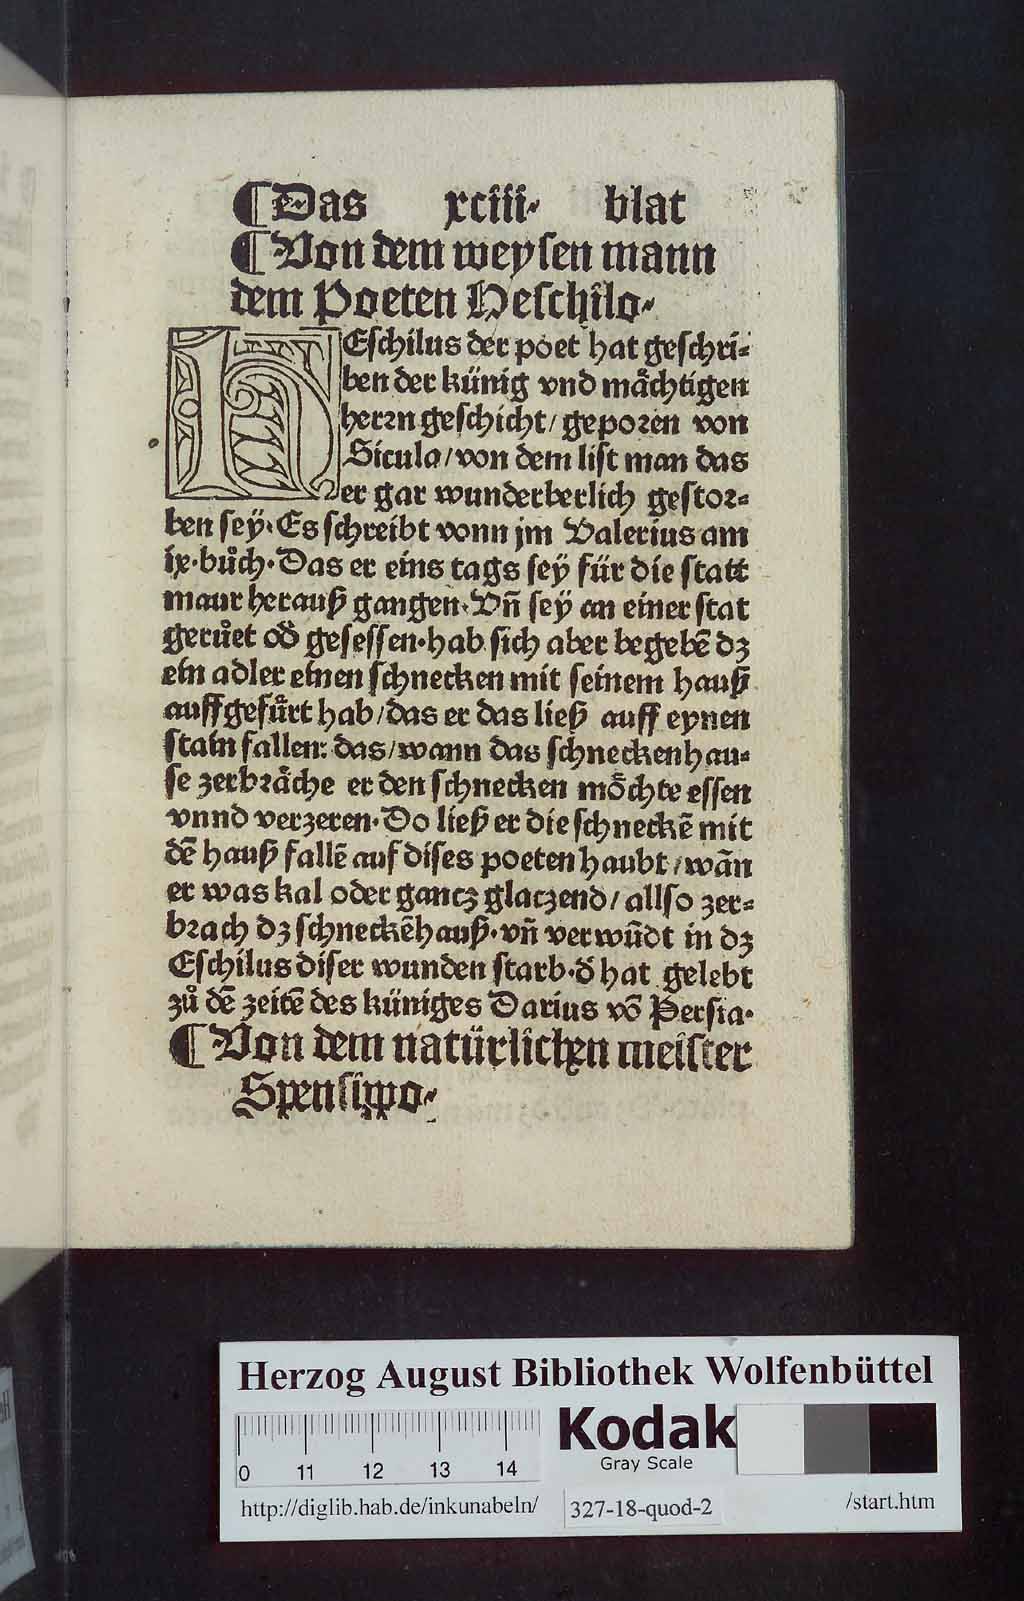 ¶Das xciii· blat
¶Von dem weysen mann
dem Poeten Heschilo·
HEschilus der poet hat geschri⸗
ben der künig vnd mächtigen
herꝛn geschicht/ geporen von
Sicula/ von dem list man das
er gar wunderberlich gestor⸗
ben sey̎· Es schreibt vonn jm Valerius am
ix· bůch· Das er eins tags sey̎ für die statt
maur herauß gangen· Vn̄ sey̎ an einer stat
gerůet od̓ gesessen· hab sich aber begebē dz
ein adler einen schnecken mit seinem hauß
auffgefürt hab/ das er das ließ auff eynen
stain fallen: das/ wann das schneckenhau⸗
se zerbräche er den schnecken möchte essen
vnnd verzeren· Do ließ er die schneckē mit
dē hauß fallē auf dises poeten haubt/ wān
er was kal oder gantz glatzend/ allso zer⸗
brach dz schneckēhauß· vn̄ verwūdt in dz
Eschilus diser wunden starb· d̓ hat gelebt
zů dē zeitē des küniges Darius vō Persia·
¶Von dem natürlichen meister
Spensippo·
Herzog August Bibliothek Wolfenbüttel
0 11 12 13 14
Kodak
Gray Scale
http://diglib.hab.de/inkunabeln/ 327-18-quod-2 /start.htm